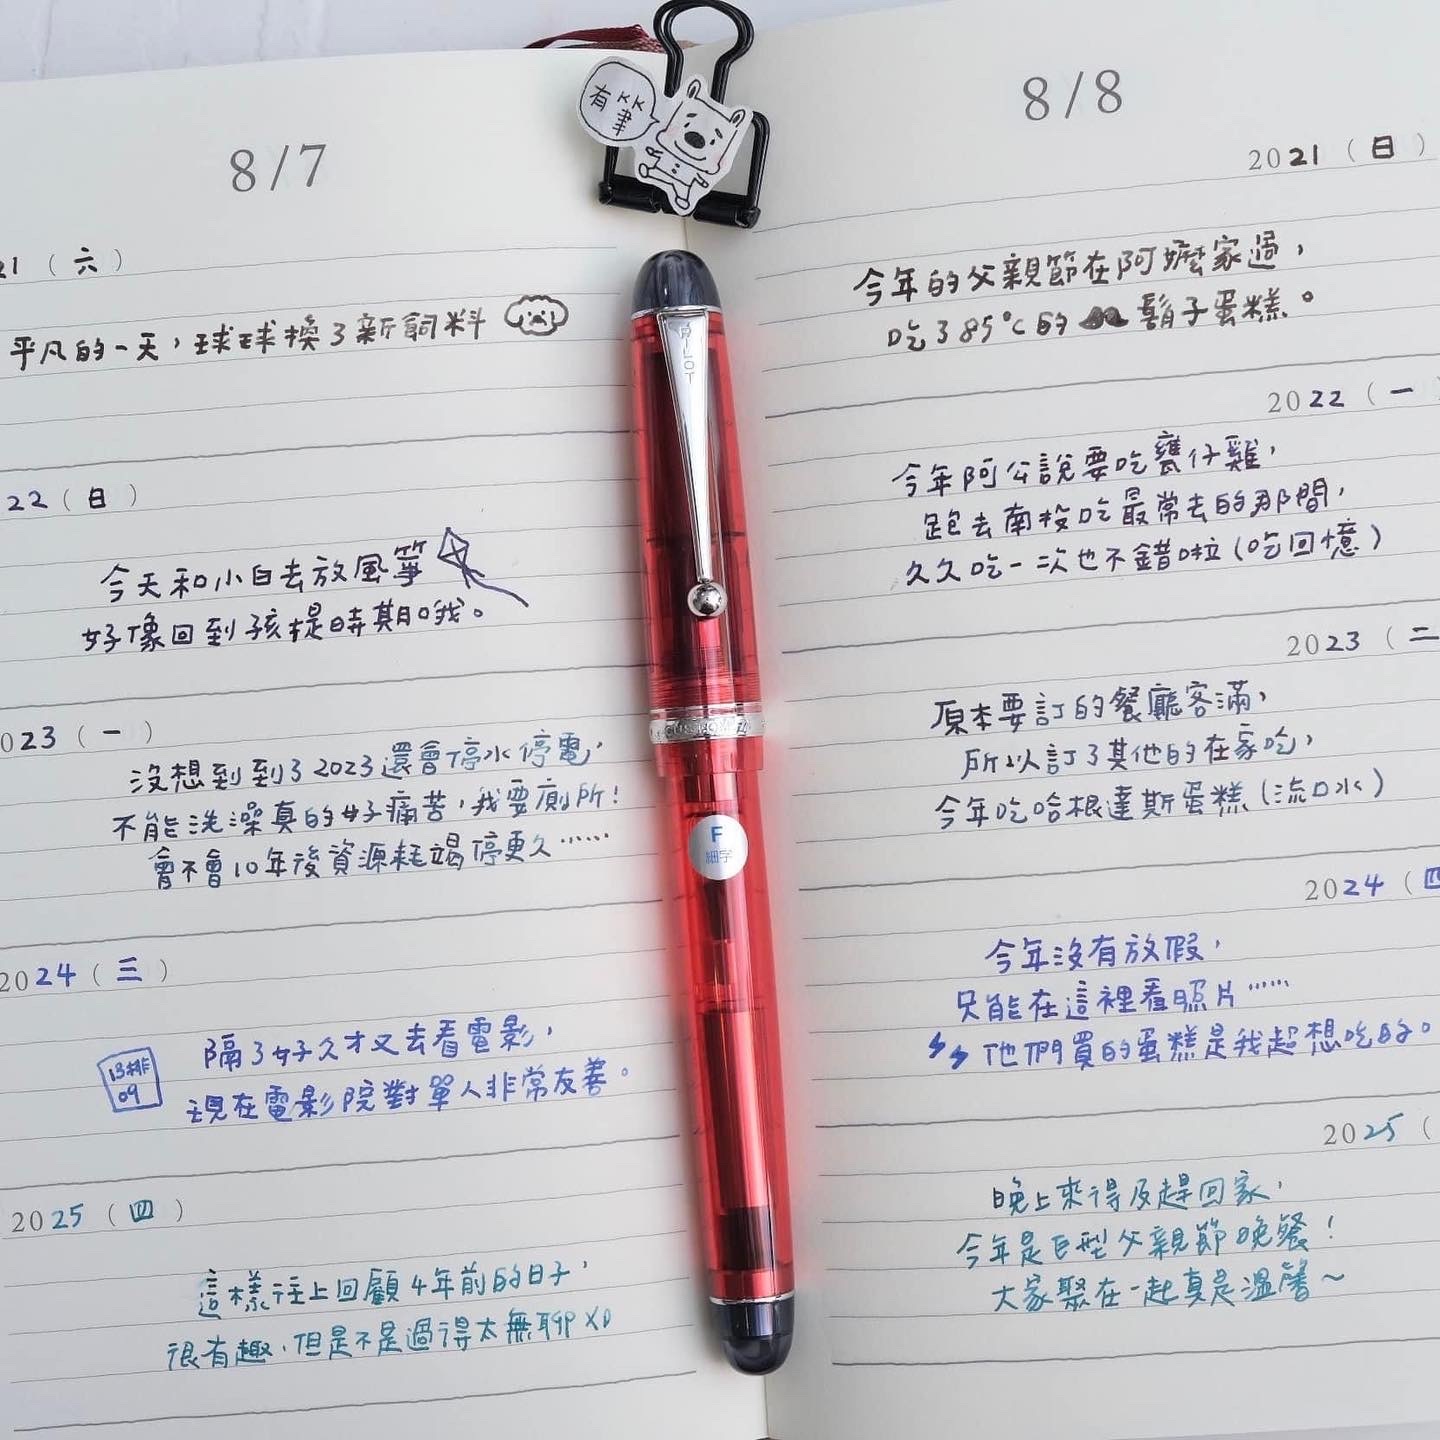 有筆
8/7
21（六）
平凡的一天，球球換了新飼料
22（日）
今天和小白去放風箏
好像回到孩提時期哦。
023（一）
沒想到到了2023還會停水停電，
不能洗澡真的好痛苦，我要廁所！
會不會10年後資源耗竭停更久……
2024（三）
隔了好久才又去看電影，
現在電影院對單人非常友善。
13排
09
2025（四）
這樣往上回顧4年前的日子，
很有趣，但是不是過得太無聊XD
PILOT
CUSTOM 74
F
細字
8/8
2021（日）
今年的父親節在阿嬤家過，
吃了85°C的鬍子蛋糕。
2022（一
今年阿公說要吃甕仔雞，
跑去南投吃最常去的那間，
久久吃一次也不錯啦（吃回憶）
2023（二
原本要訂的餐廳客滿，
所以訂了其他的在家吃，
今年吃哈根達斯蛋糕（流口水）
2024（四
今年沒有放假，
只能在這裡看照片……
他們買的蛋糕是我超想吃的。
2025（
晚上來得及趕回家，
今年是巨型父親節晚餐！
大家聚在一起真是溫馨～